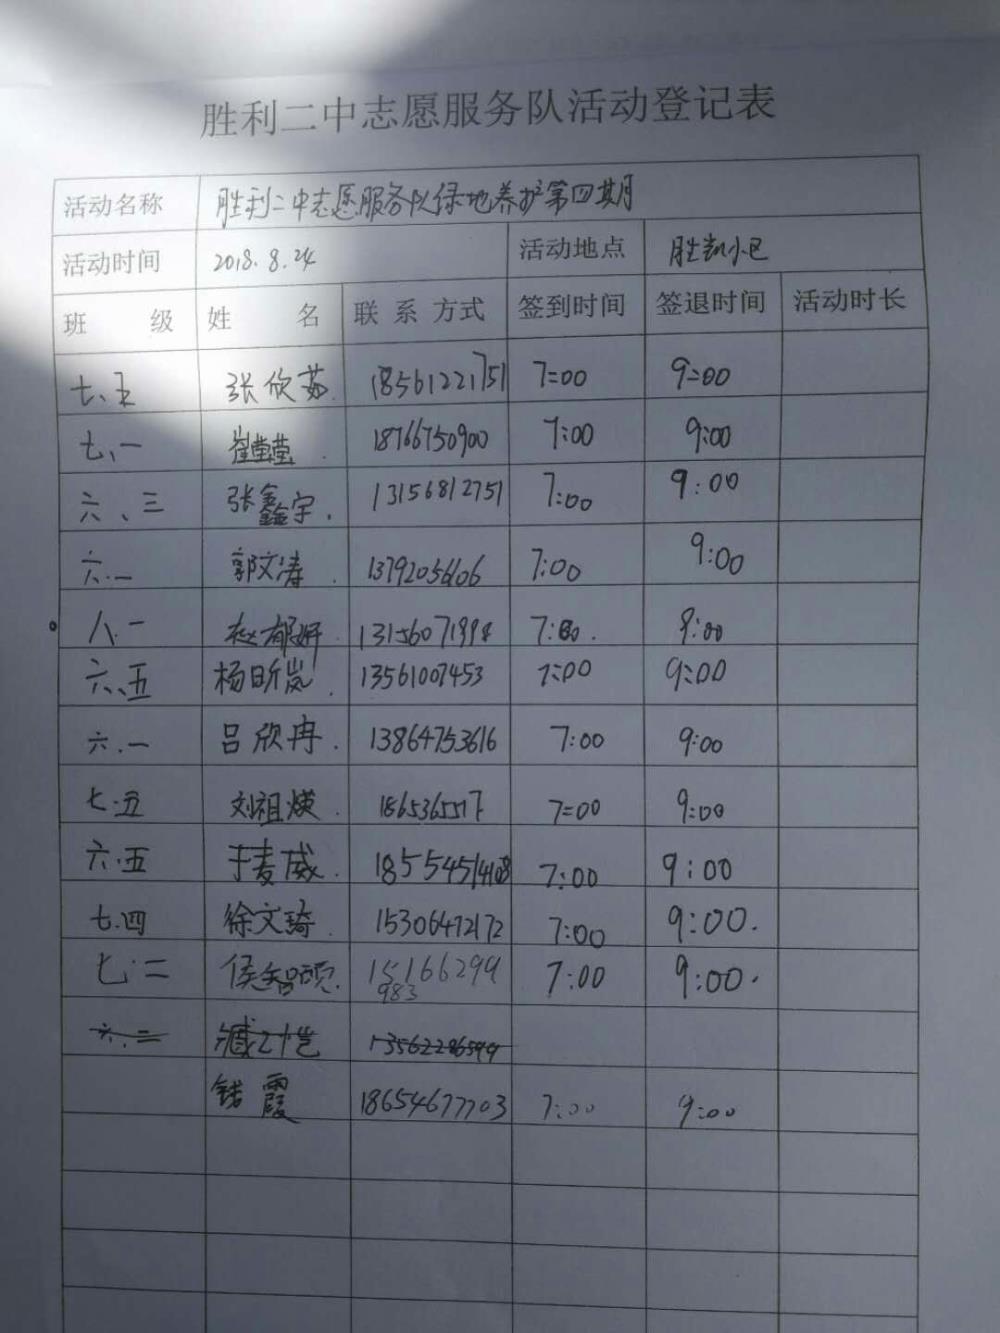 胜利二中志愿服务队活动登记表
活动名称 胜利二中志愿服务队绿地养护第四期
活动时间 2018.8.24 活动地点 胜凯小区
班 级 姓 名 联 系 方式 签到时间 签退时间 活动时长
七、五 张欣茹 18561221751 7:00 9:00
七、一 崔莹莹 18766750900 7:00 9:00
六、三 张鑫宇 13156812751 7:00 9:00
六.一 郭文涛 13792056606 7:00 9:00
八.一 赵郁妍 7:00 9:00
六、五 杨昕岚 13561007453 7:00 9:00
六.一 吕欣冉 13864753616 7:00 9:00
七.五 刘祖煐 7:00 9:00
六.五 于麦威 18554514108 7:00 9:00
七.四 徐文琦 15306472172 7:00 9:00.
七.二 侯智硕 15166299983 7:00 9:00.
六.二 13562286599
霞 18654677703 7:00 9:00